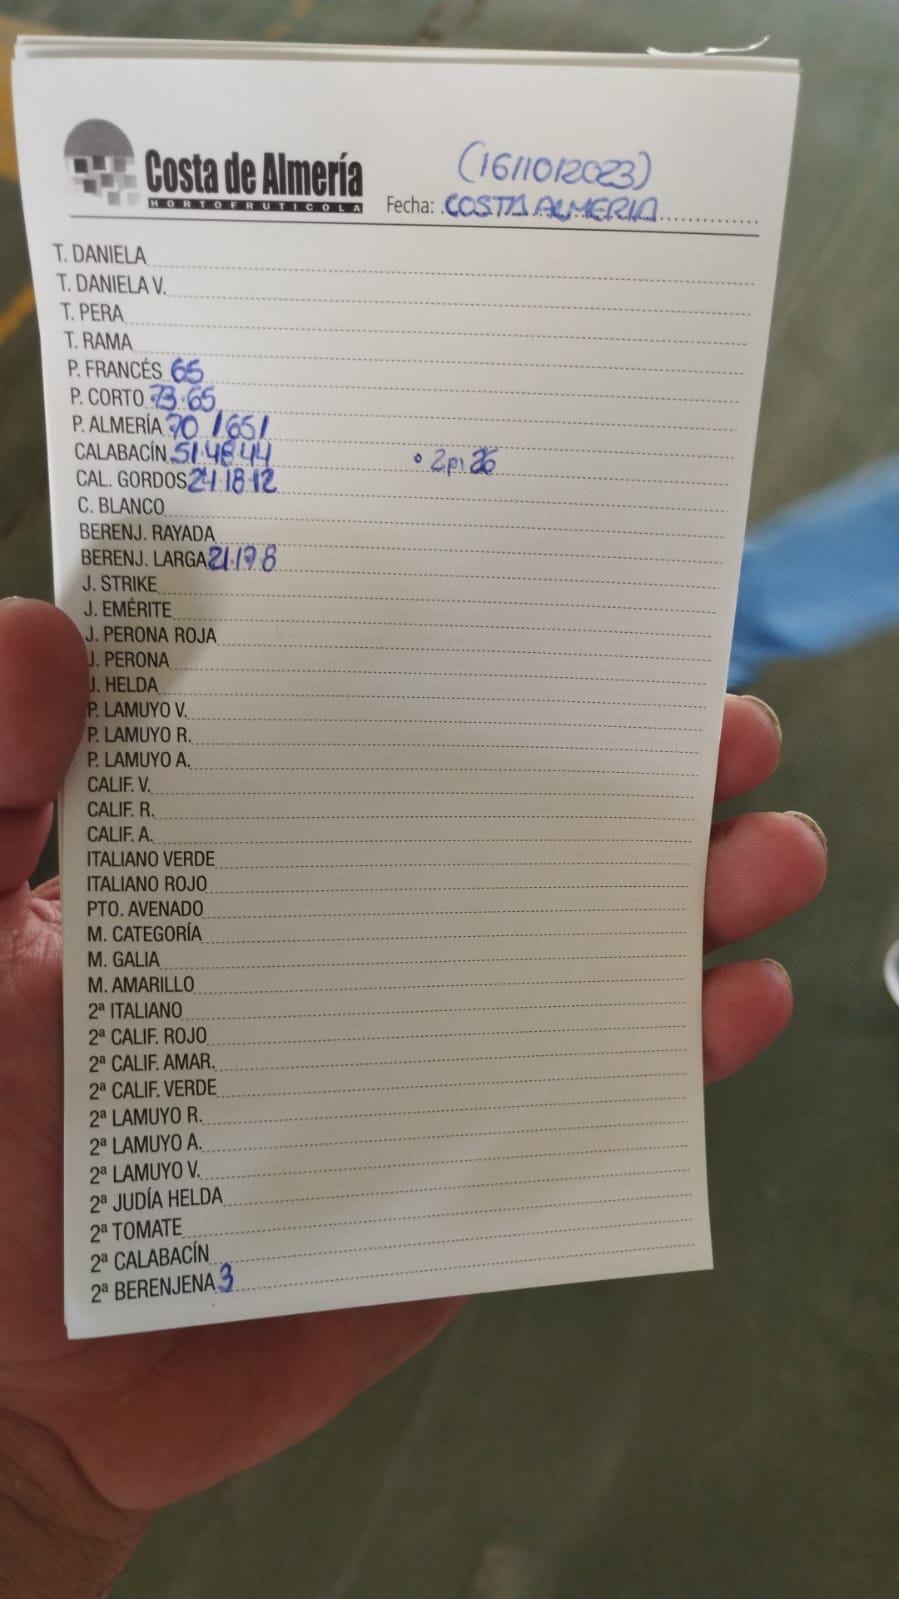 Costa de Almería
HORTOFRUTICOLA
(16/10/2023)
Fecha: COSTA ALMERIA
T. DANIELA
T. DANIELA V.
T. PERA
T. RAMA
P. FRANCÉS 65
P. CORTO 73·65
P. ALMERÍA 70 /65/
CALABACÍN 51·48·44 • 2p1 26
CAL. GORDOS 24·18·12
C. BLANCO
BERENJ. RAYADA
BERENJ. LARGA 21·17·8
J. STRIKE
J. EMÉRITE
J. PERONA ROJA
J. PERONA
J. HELDA
P. LAMUYO V.
P. LAMUYO R.
P. LAMUYO A.
CALIF. V.
CALIF. R.
CALIF. A.
ITALIANO VERDE
ITALIANO ROJO
PTO. AVENADO
M. CATEGORÍA
M. GALIA
M. AMARILLO
2ª ITALIANO
2ª CALIF. ROJO
2ª CALIF. AMAR.
2ª CALIF. VERDE
2ª LAMUYO R.
2ª LAMUYO A.
2ª LAMUYO V.
2ª JUDÍA HELDA
2ª TOMATE
2ª CALABACÍN
2ª BERENJENA 3